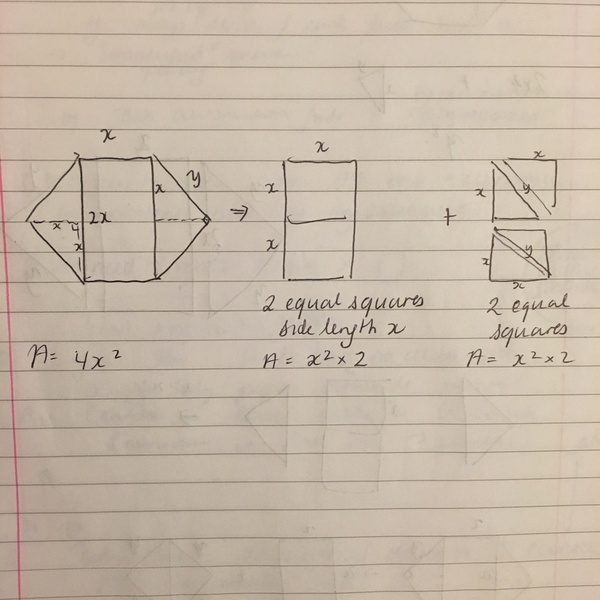 x
x
x
y
x
x
y
2x
x
x
y
⇒
+
x
x
x
y
x
x
2 equal squares
side length x
2 equal
squares
A= 4x²
A= x² × 2
A= x² × 2